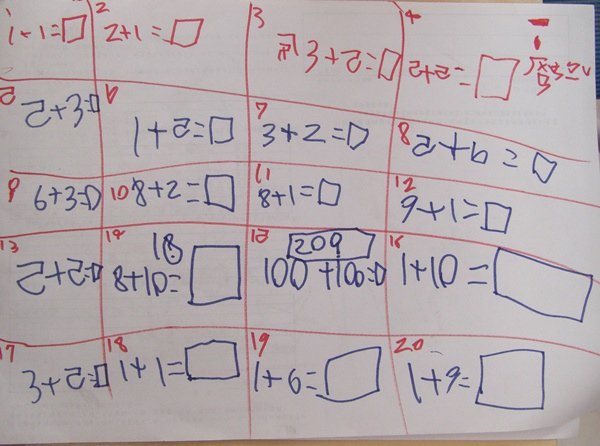 1
1+1=□
2
2+1=□
3
3+5=□
4
5+5=□
5
5+3=□
6
1+5=□
7
3+2=□
8
9
6+3=□
10
8+2=□
11
8+1=□
12
9+1=□
13
5+5=□
14
18
8+10=□
15
209
100+100=□
16
1+10=□
17
3+5=□
18
1+1=□
19
1+6=□
20
1+9=□